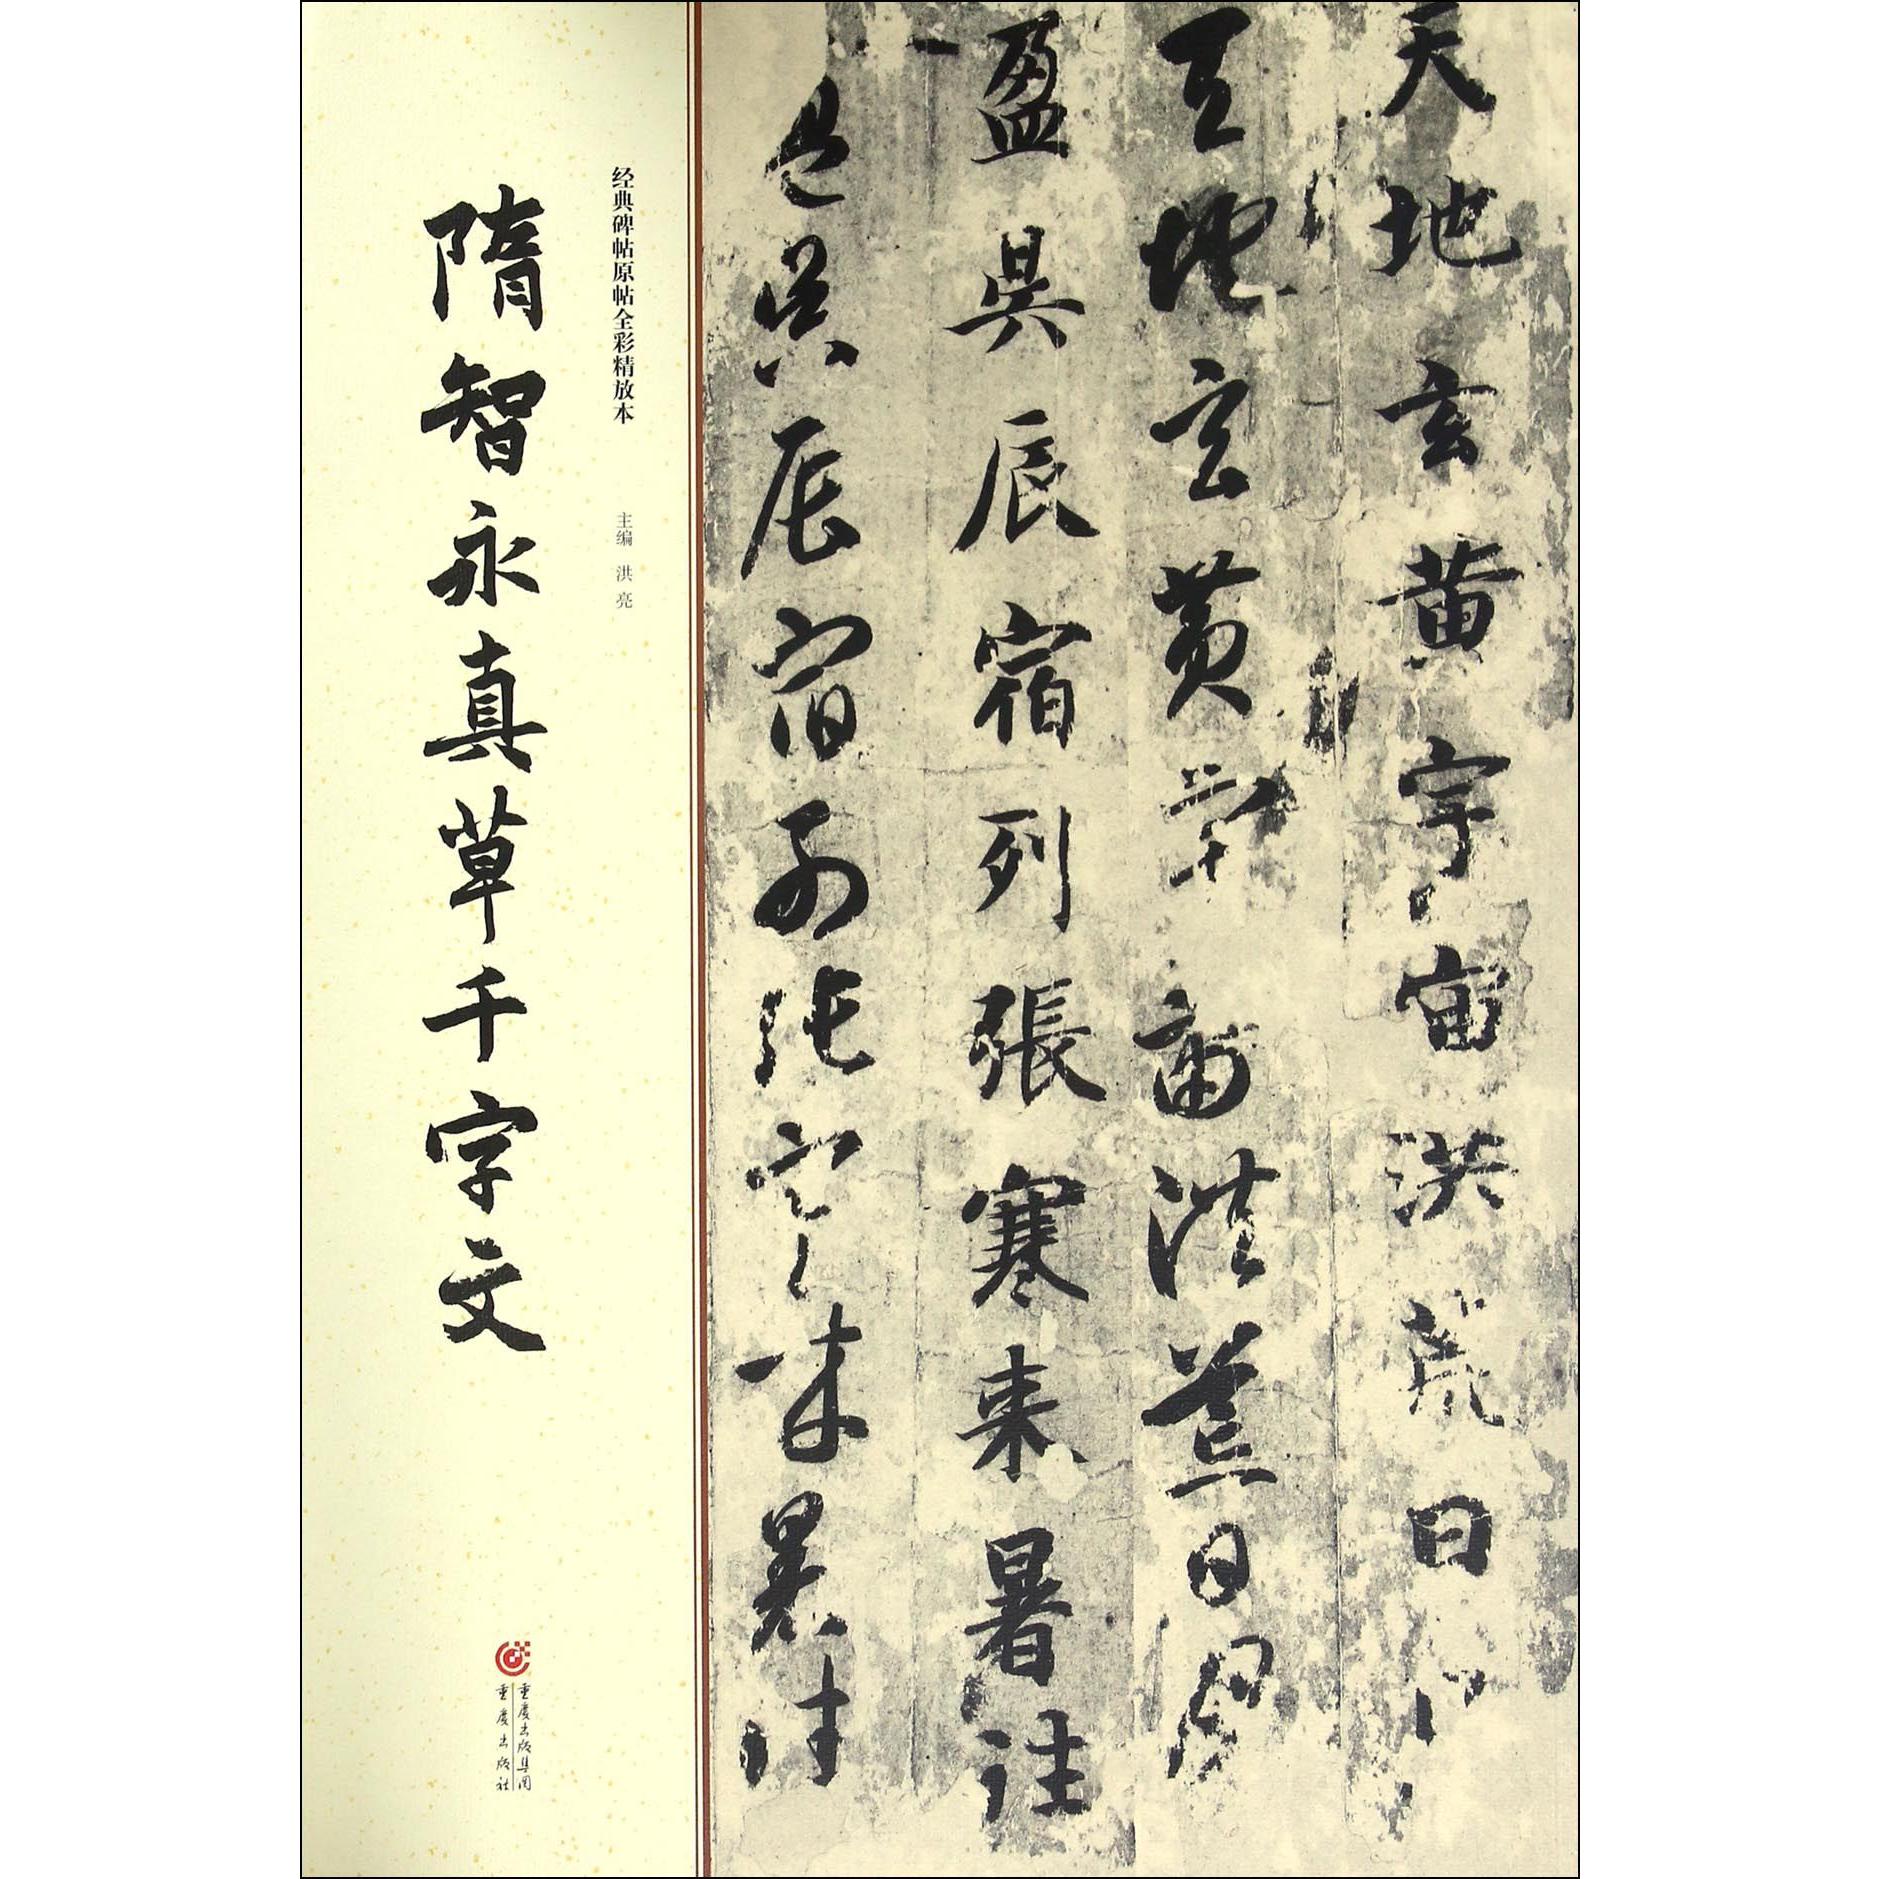 天地玄黃宇宙洪荒日
天地玄黃宇宙洪荒日月
盈昃辰宿列張寒來暑往
昃辰宿列張寒來暑往
经典碑帖原帖全彩精放本
主编 洪亮
隋智永真草千字文
重庆出版集团
重庆出版社